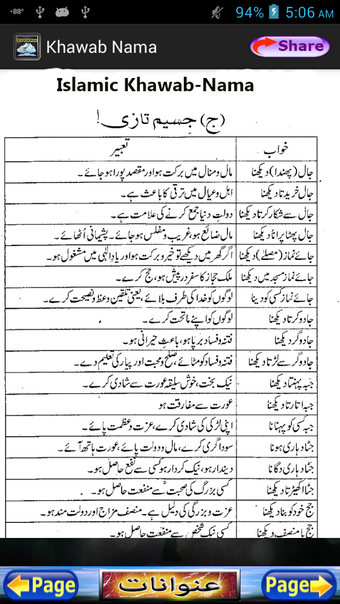 94% 5:06 AM
Khawab Nama
Share
Islamic Khawab-Nama
(ج) جسیم تازی!
خواب تعبیر
جال (پھندا) دیکھنا مال و منال میں برکت ہو اور مقصد پورا ہو جائے۔
جال خریدتا دیکھنا اہل و عیال میں ترقی کا باعث ہے۔
جال سے شکار کرتا دیکھنا دولتِ دنیا جمع کرنے کی علامت ہے۔
جال پھٹا پرانا دیکھنا مال ضائع ہو، غریب و مفلس ہو جائے۔ پشیمانی اُٹھائے۔
جائے نماز (مصلے) دیکھنا اگر گھر میں دیکھے تو خیر و برکت ہو اور یادِ الٰہی میں مشغول ہو۔
جائے نماز مسجد میں دیکھنا ملک حجاز کا سفر درپیش ہو، حج کرے۔
جائے نماز کسی کو دینا لوگوں کو خدا کی طرف بلائے، یعنی تلقین و وعظ و نصیحت کرے۔
جادو کرتا دیکھنا لوگوں کو اپنے ماتحت کرے۔
جادوگر دیکھنا فتنہ و فساد برپا ہو، باعثِ حیرانی ہو۔
جادوگر سے لڑتا دیکھنا فتنہ و فساد کو مٹائے، صلح و محبت اور پیار کی تعلیم دے۔
جبہ پہنتا دیکھنا نیک بخت، خوش سلیقہ عورت سے شادی کرے۔
جبہ اتارتا دیکھنا عورت سے مفارقت ہو
جبہ کسی کو پہنانا اپنی لڑکی کی شادی کرے، عزت و عظمت پائے۔
جٹادہاری ہونا سوداگری کرے، مال و دولت پائے، عورت ہاتھ آئے۔
جٹادہاری دیندار ہو، نیک کردار ہو کسی سے نفع حاصل ہو۔
جٹا اکھیڑتا دیکھنا کسی بزرگ کی صحبت سے منفعت حاصل ہو۔
جج خود کو بنا دیکھنا عزت و بزرگی کی دلیل ہے۔ منصف مزاج اور دولت مند ہو۔
جج یا منصف دیکھنا کسی نیک شخص سے منفعت حاصل ہو۔
Page عنوانات Page